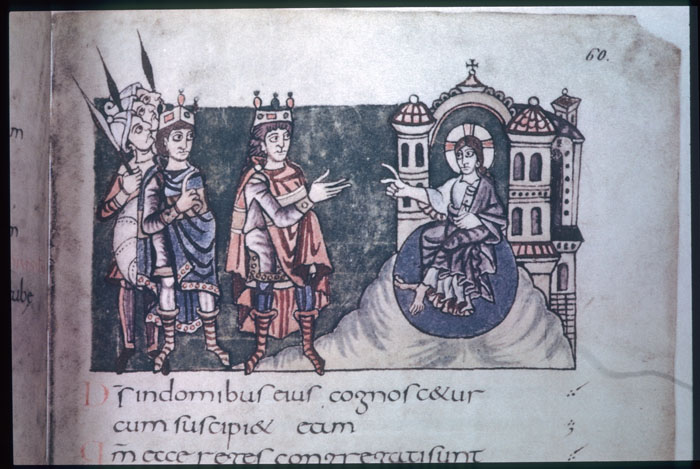 60.
D̄s indomibus eius cognosc&ur
cum suscipi& eam
Qm̄ ecce reges congregati sunt